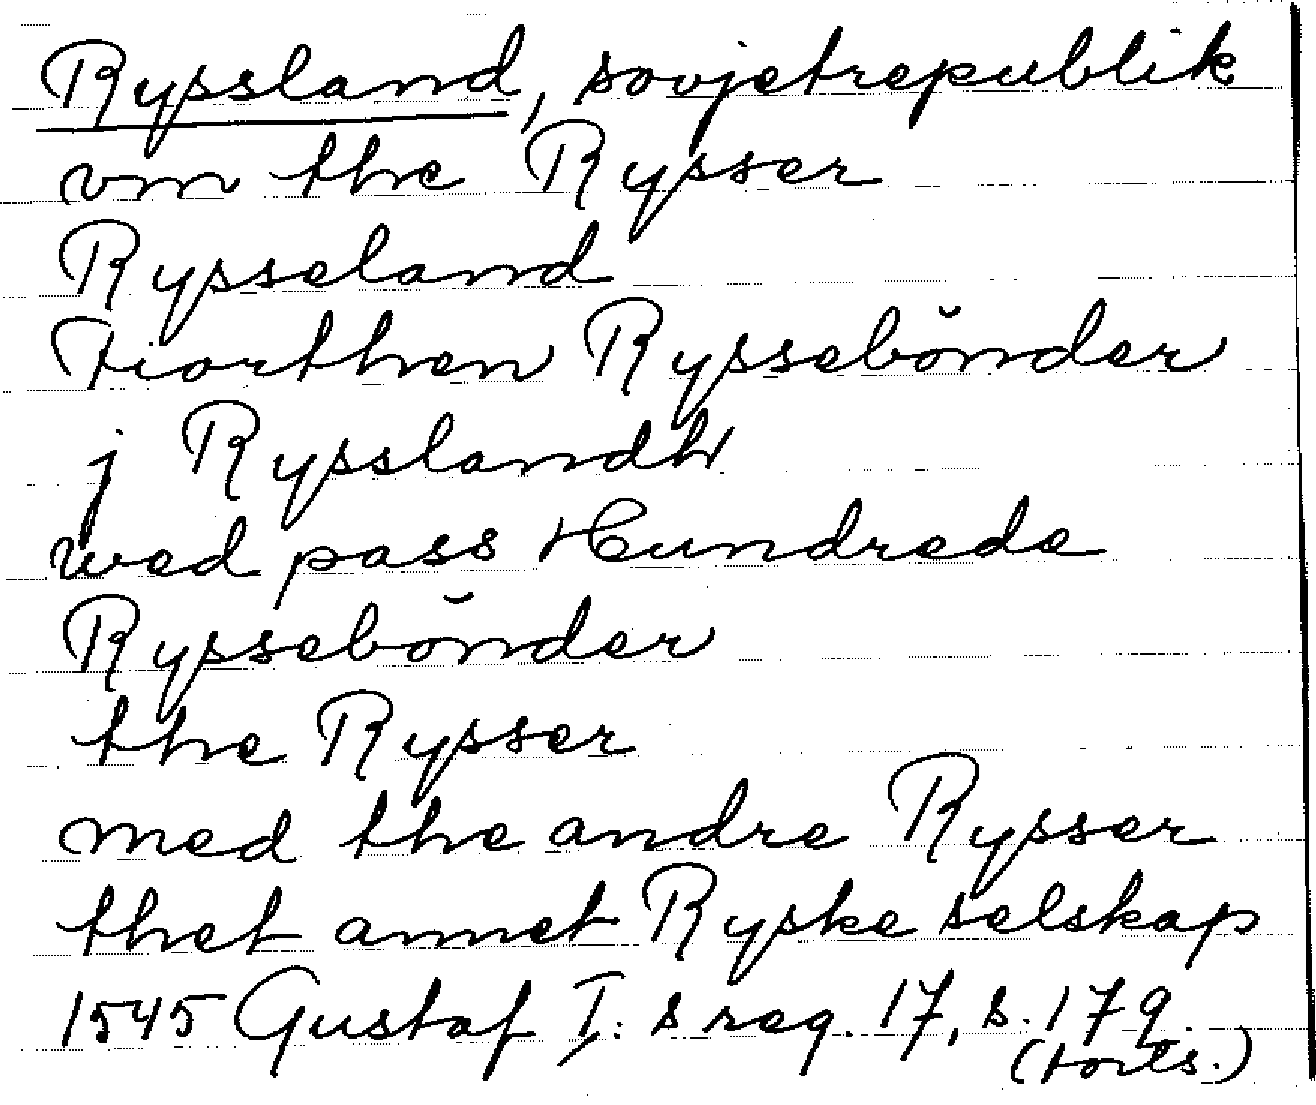 Ryssland, sovjetrepublik
vm the Rysser
Rysseland
Fiorthen Ryssebönder
j Rysslandh
wed pass Hundrede
Ryssebönder
the Rysser
med the andre Rysser
thet annet Ryske selskap
1545 Gustaf I:s reg. 17, s. 179.
(forts.)